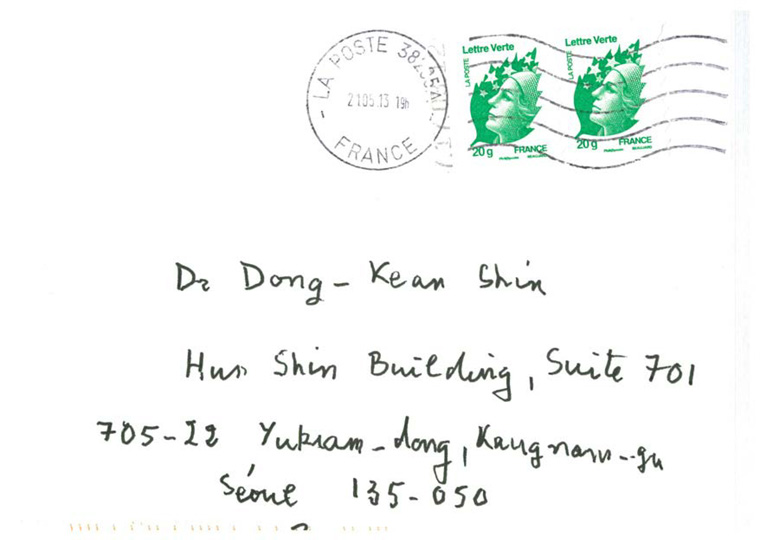 LA POSTE 38
21.05.13 19h
FRANCE
Lettre Verte
LA POSTE
20 g FRANCE
Lettre Verte
LA POSTE
20 g FRANCE
Dr Dong-Kean Shin
Hun Shin Building, Suite 701
705-22 Yuksam-dong, Kangnam-gu
Séoul 135-050